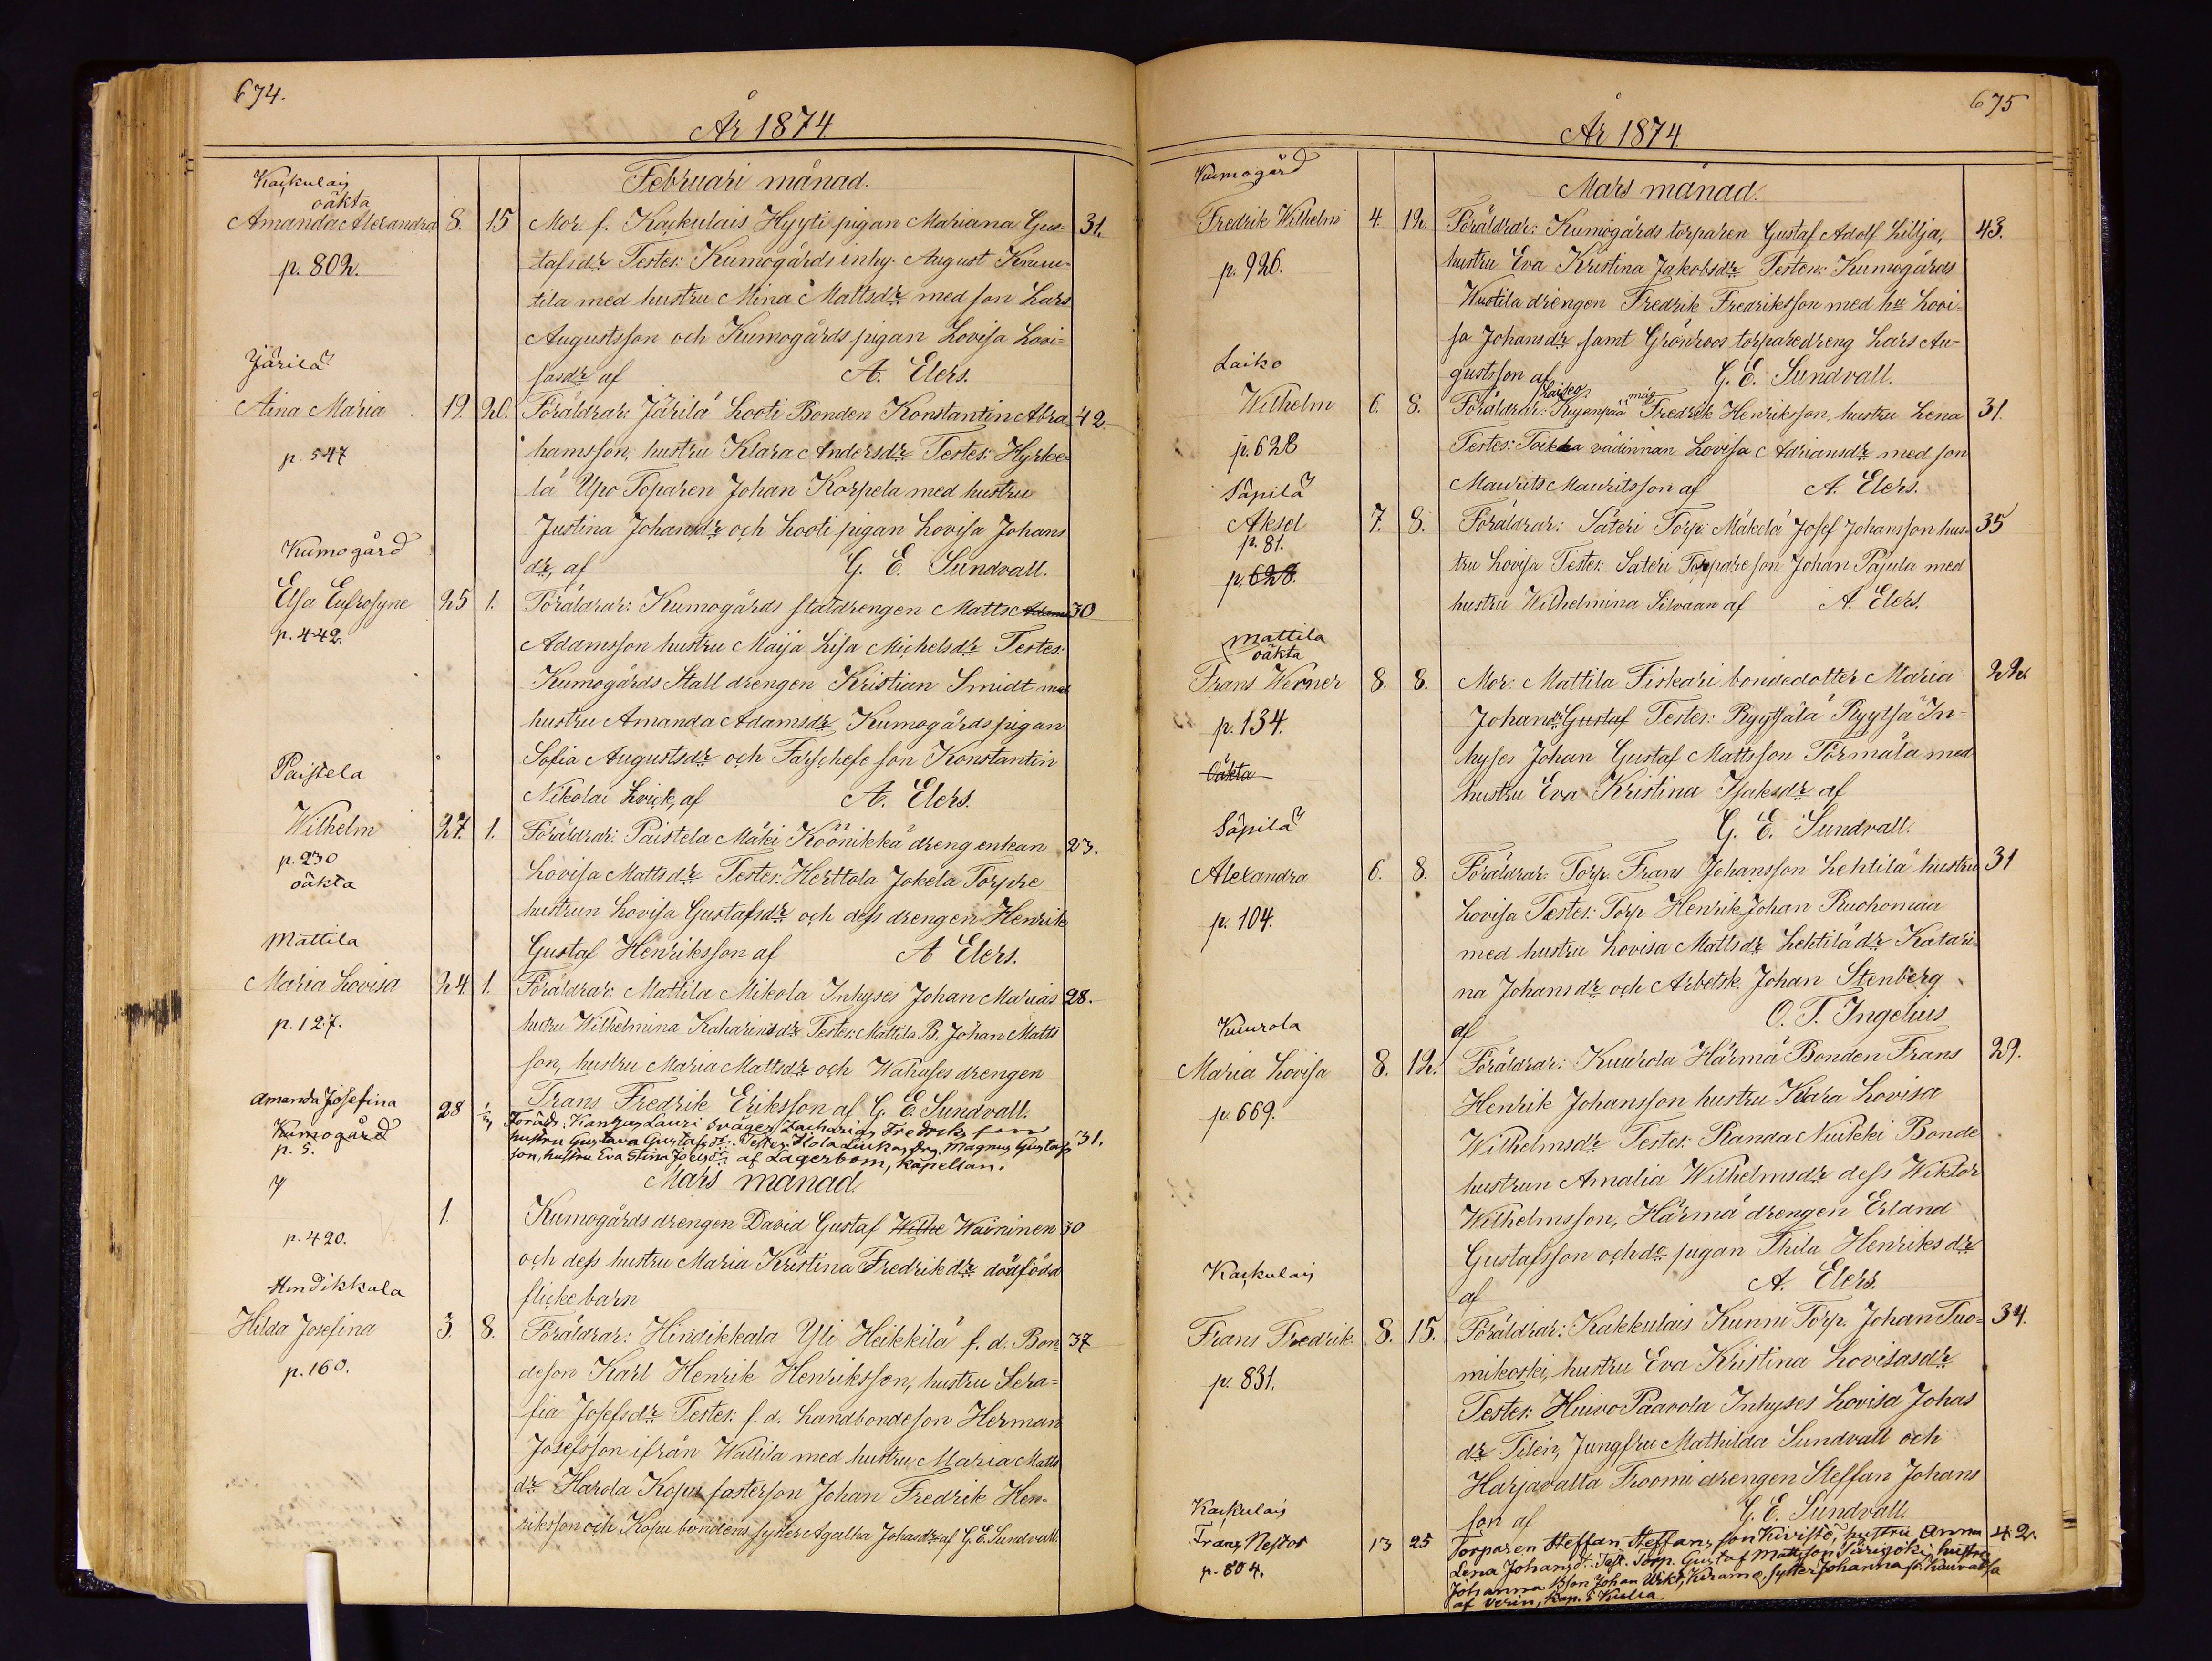 674.
År 1874
Februari månad.
Kackulais
oäkta
Amanda Alexandra 8. 15 Mor. f. Kackulais Hyyti pigan Mariana Gus- 31.
p. 802. tafsdr Testes: Kumogårds inhy. August Knuu-
tila med hustru Mina Mattsdr med son Lars
Augustsson och Kumogårds pigan Lovisa Lovi=
sasdr af A. Elers.
Järilä
Aina Maria 19. 20. Föräldrar: Järilä Looti Bonden Konstantin Abra- 42.
p. 547 hamsson, hustru Klara Andersdr Testes: Hyrke-
lä Upo Toparen Johan Korpela med hustru
Justina Johansdr och Looti pigan Lovisa Johans
dr, af G. E. Sundvall.
Kumogård
Elsa Eufrosyne 25 1. Föräldrar: Kumogårds staldrengen Matts Adams 30
p. 442. Adamsson hustru Maija Lisa Michelsdr Testes:
Kumogårds Stall drengen Kristian Smidt med
hustru Amanda Adamsdr Kumogårds pigan
Sofia Augustsdr och Farschefe son Konstantin
Nikolai Lvick, af A. Elers.
Paistela
Wilhelm 27. 1. Föräldrar: Paistela Mäki Köönikkä dreng enkan 23.
p. 230 Lovisa Mattsdr Testes: Herttola Jokela Torpare
oäkta hustrun Lovisa Gustafsdr och dess drengen Henrik
Gustaf Henriksson af A Elers.
Mattila
Maria Lovisa 24. 1. Föräldrar: Mattila Mikola Inhyses Johan Marias 28.
p. 127. hustru Wilhelmina Kaharinsdr Testes: Mattila B. Johan Matts
son, hustru Maria Mattsdr och Wahases drengen
Frans Fredrik Eriksson af G. E. Sundvall.
Amanda Josefina 28 1/3 Föräldr. Kangas Lauri svåger Zacharias Fredriks son
Kumogård hustru Gustava Gustafsdr. Testes: Hola Liukas drg. Magnus Gustafs 31.
p. 5. son, hustru Eva Stina Joelsdr af Lagerbom, kapellan.
Mars månad.
1. Kumogårds drengen David Gustaf Wilhe Waininen 30
p. 420. och dess hustru Maria Kristina Fredrikdr dödfödd
flicke barn
Hindikkala
Hilda Josefina 3. 8. Föräldrar: Hindikkala Yli Heikkilä f. d. Bon- 37
p. 160. deson Karl Henrik Henriksson, hustru Sera=
fia Josefsdr Testes: f. d. Landbondeson Herman
Josefsson ifrån Wattila med hustru Maria Matts
dr Harola Kopu fasterson Johan Fredrik Hen-
riksson och Kopu bondens syster Agatha Johansdr af G. E. Sundvall.
675
År 1874
Mars månad.
Kumogård
Fredrik Wilhelm 4. 12. Föräldrar: Kumogårds torparen Gustaf Adolf Lillja, 43.
p. 926. hustru Eva Kristina Jakobsdr Testes: Kumogårds
Knutila drengen Fredrik Fredriksson med hu Lovi=
sa Johansdr samt Grönroos torparedreng Lars Au-
gustsson af G. E. Sundvall.
Laiko
Wilhelm 6. 8. Föräldrar: Kujanpää Fredrik Henriksson, hustru Lena 31.
p. 628 Testes: Toikka vädinnan Lovisa Adriansdr med son
Maurits Mauritsson af A. Elers.
Säpilä
Aksel 7. 8. Föräldrar: Säteri Torp: Mäkelä Josef Johansson hus- 35
p. 81. tru Lovisa Testes: Säteri Torpare son Johan Pajula med
p. 628. hustru Wilhelmina Silvaan af A. Elers.
Mattila
oäkta
Frans Werner 8. 8. Mor: Mattila Fiskari bondedotter Maria 22.
p. 134. Johansdr Gustaf Testes: Ryytsälä Ryytsä In=
oäkta hyses Johan Gustaf Mattsson Törmälä med
hustru Eva Kristina Isaksdr af
G. E. Sundvall.
Säpilä
Alexandra 6. 8. Föräldrar: Torp. Frans Johansson Lehtilä hustru 31
p. 104. Lovisa Testes: Torp Henrik Johan Ruohomaa
med hustru Lovisa Mattsdr Lehtilä dr Katari-
na Johansdr och Arbetsk. Johan Stenberg
af O. T. Ingelius
Kuurola
Maria Lovisa 8. 12. Föräldrar: Kuurola Härmä Bonden Frans 29.
p. 669. Henrik Johansson hustru Klara Lovisa
Wilhelmsdr Testes: Randa Nuikki Bonde
hustrun Amalia Wilhelmsdr dess Wiktor
Wilhelmsson, Härmä drengen Erland
Gustafsson och do pigan Thila Henriksdr
af A. Elers.
Kackulais
Frans Fredrik. 8. 15. Föräldrar: Kakkulais Kunni Torp. Johan Tuo- 34.
p. 831. mikoski, hustru Eva Kristina Lovisasdr
Testes: Huivo Paavola Inhyses Lovisa Johas
dr Tilén, Jungfru Mathilda Sundvall och
Harjavalta Troomi drengen Steffan Johans
son af G. E. Sundvall.
Kackulais
Frans Nestor 13 25 Torparen Steffan Steffansson Kivistö, hustru Anna 42.
p. 804. Lena Johansdt. Test. Torp. Gustaf Mattsson Särijöki, hustru
Johanna Bson Johan Urkt, Kirama, syster Johanna fr. Kauvatsa
af Verin, Kap. i Kulla.